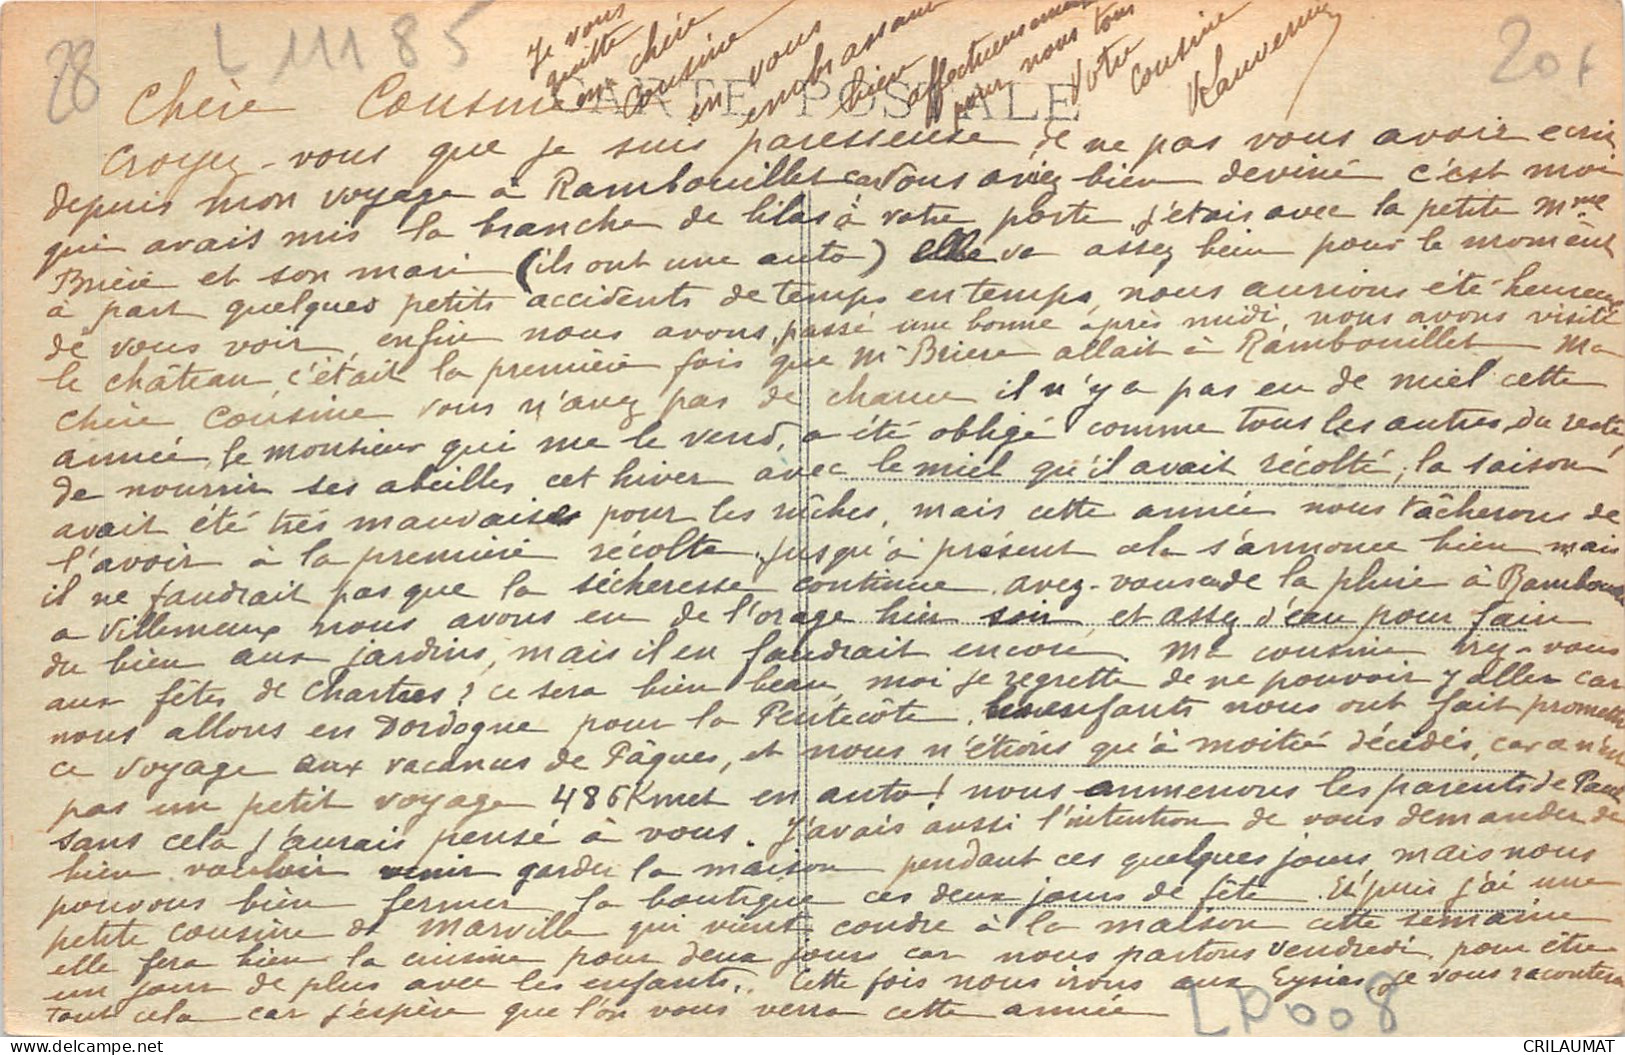 28
L 11185
20f
CARTE POSTALE
Chère Cousine
Croyez-vous que je suis paresseuse de ne pas vous avoir écrit
depuis mon voyage à Rambouillet car vous aviez bien deviné c'est moi
qui avais mis la branche de lilas à votre porte j'étais avec la petite Mme
Brière et son mari (ils ont une auto) elle va assez bien pour le moment
à part quelques petits accidents de temps en temps, nous aurions été heureux
de vous voir, enfin nous avons passé une bonne après midi, nous avons visité
le château, c'était la première fois que Mr Briere allait à Rambouillet. Ma
chère cousine vous n'avez pas de chance il n'y a pas eu de miel cette
année, le monsieur qui me le vend, a été obligé comme tous les autres, du reste
de nourrir ses abeilles cet hiver avec le miel qu'il avait récolté, la saison
avait été très mauvaise pour les rûches, mais cette année nous tâcherons de
l'avoir à la première récolte. Jusqu'à présent cela s'annonce bien mais
il ne faudrait pas que la sécheresse continue. avez-vous eu de la pluie à Rambouillet
a Villemeux nous avons eu de l'orage hier soir, et assez d'eau pour faire
du bien aux jardins, mais il en faudrait encore. Ma cousine irez-vous
aux fêtes de Chartres? ce sera bien beau, moi je regrette de ne pouvoir y aller car
nous allons en Dordogne pour la Pentecôte, les enfants nous ont fait promettre
ce voyage aux vacances de Pâques, et nous n'étions qu'à moitié décidés, car n'est
pas un petit voyage 486 Kmet en auto! nous emmenons les parents de Paul
sans cela j'aurais pensé à vous. J'avais aussi l'intention de vous demander de
bien vouloir venir garder la maison pendant ces quelques jours, mais nous
pouvons bien fermer la boutique ces deux jours de fête. Et puis j'ai une
petite cousine de Marville qui vient coudre à la maison cette semaine
elle fera bien la cuisine pour deux jours car nous partons vendredi pour être
un jour de plus avec les enfants. Cette fois nous irons aux Eysies, je vous raconterai
tout cela car j'espère que l'on vous verra cette année
Je vous
quitte
ma chère
Cousine
en vous
embrassant
bien
affectueusement
pour nous tous
Votre
cousine
LP008
CRILAUMAT